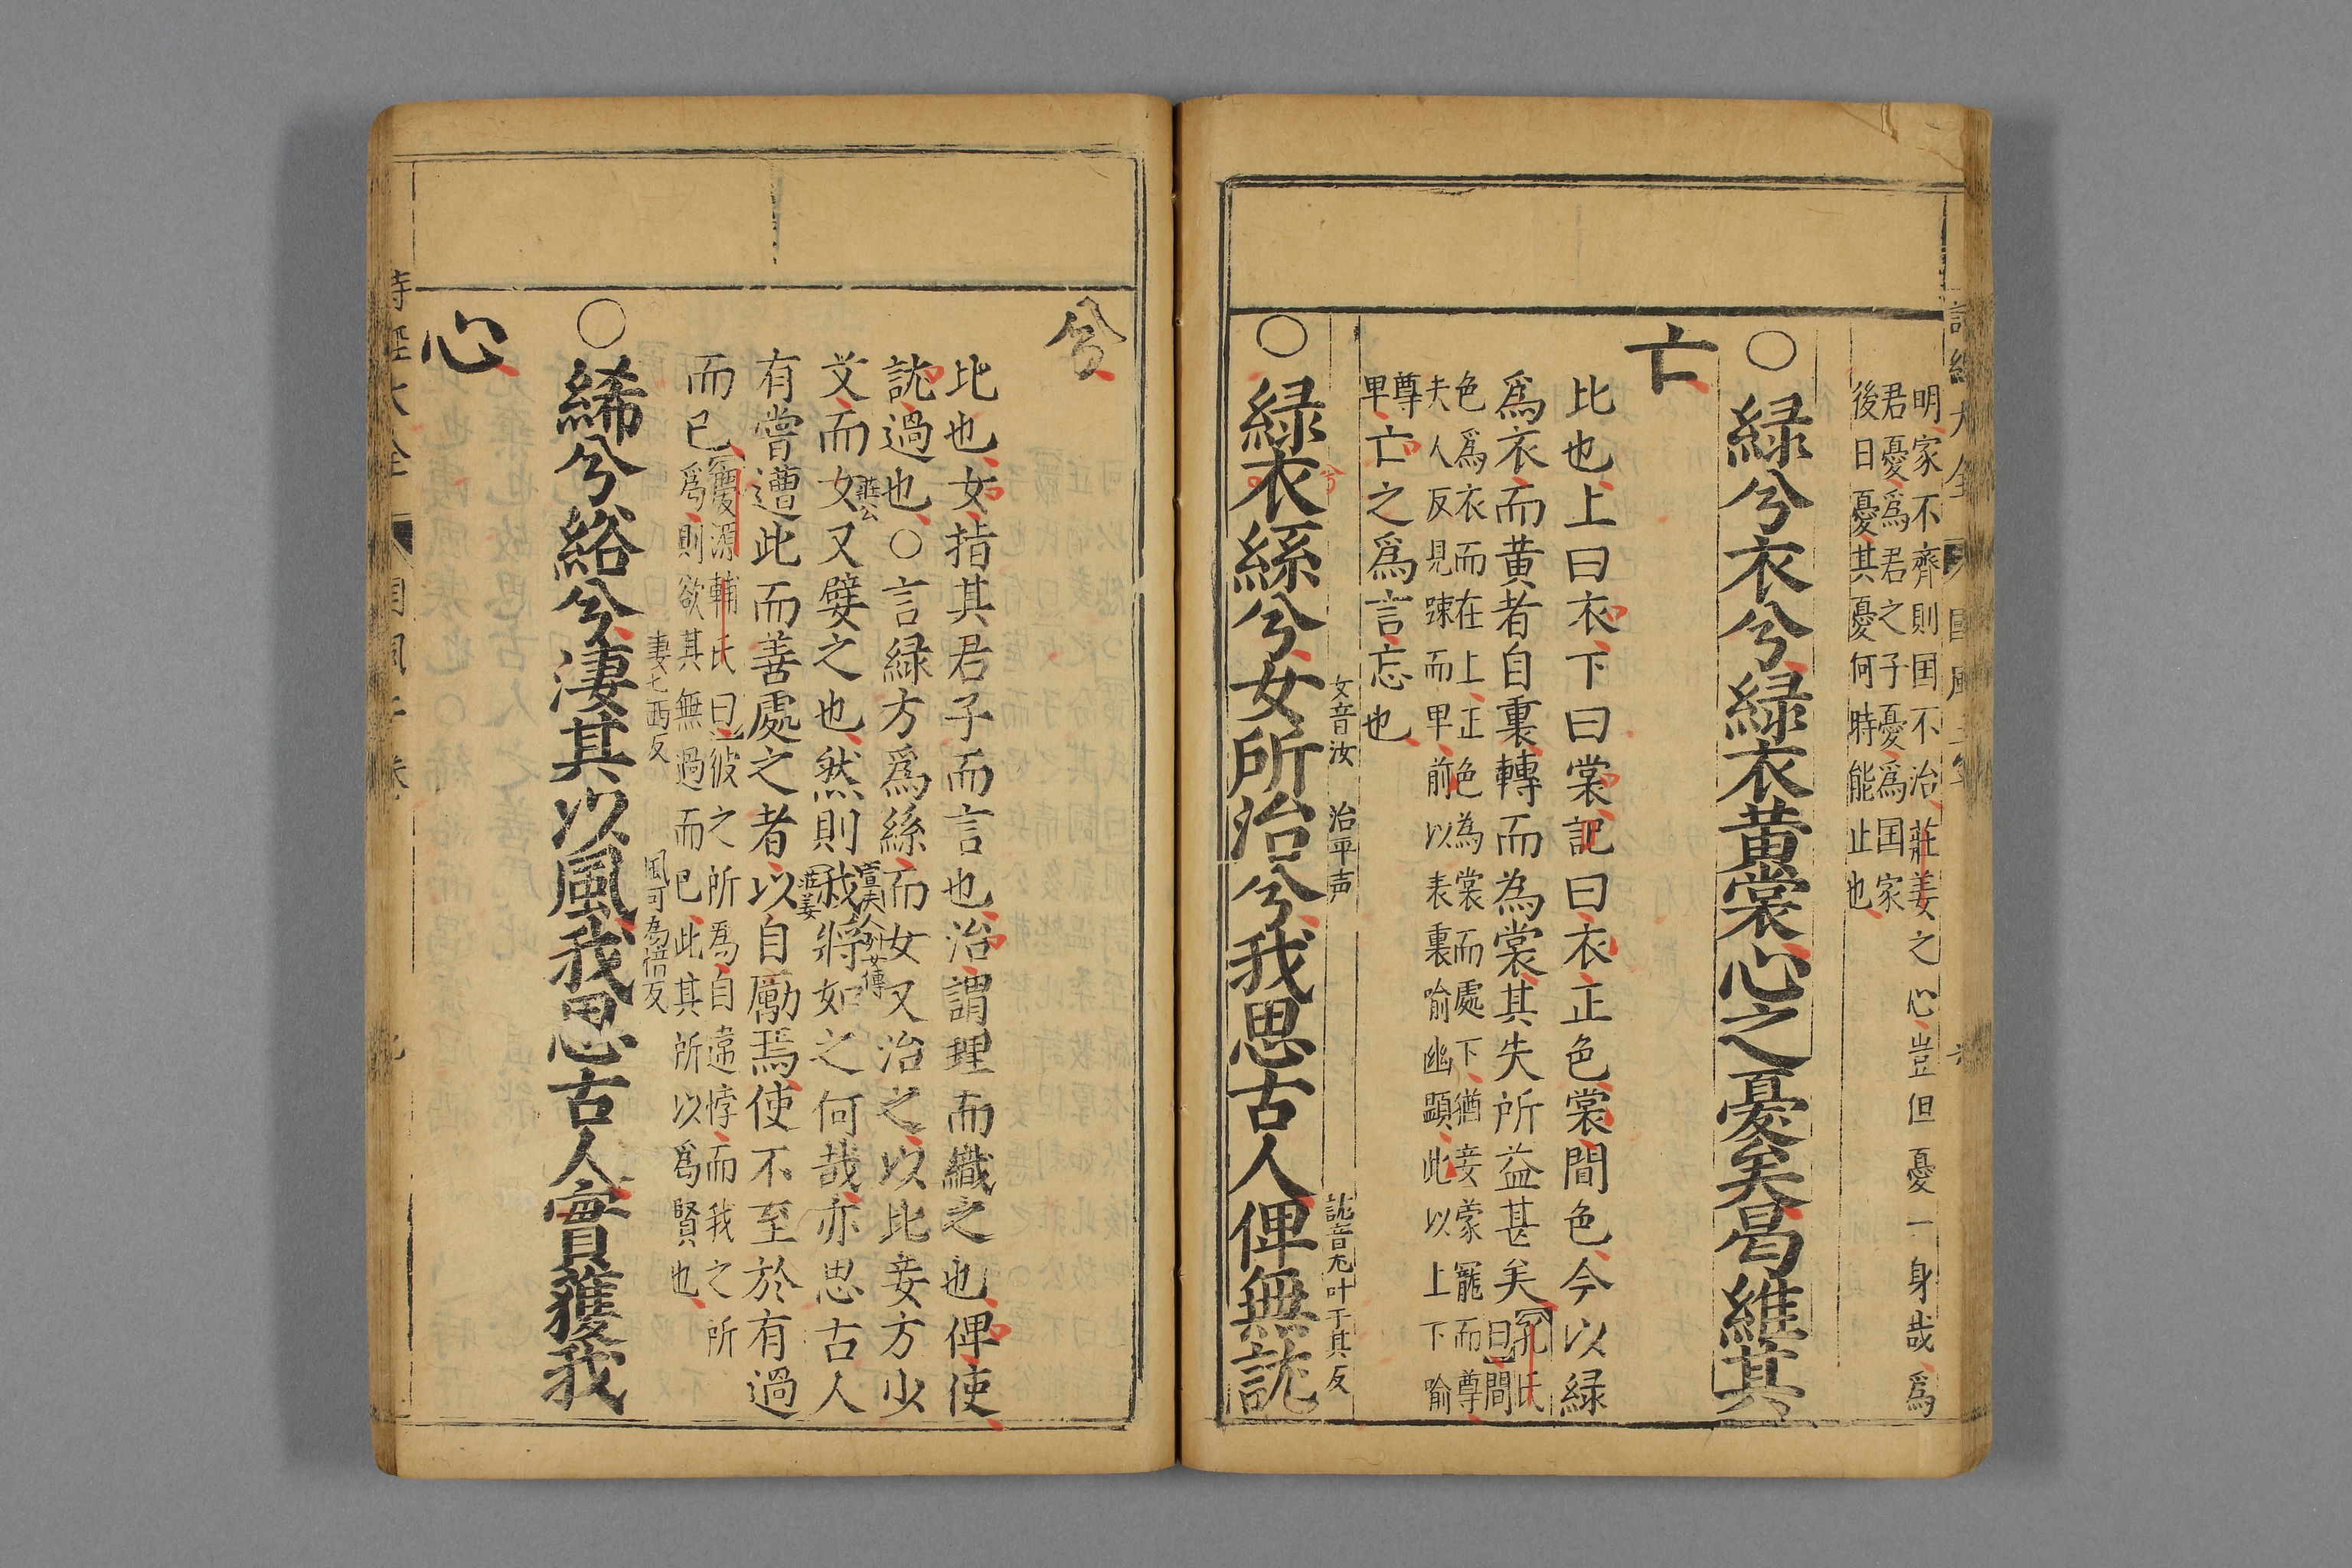 明家不齊則国不治莊姜之心豈但憂一身哉爲
君憂爲君之子憂爲国家
後日憂其憂何時能止也
○綠兮衣兮綠衣黃裳心之憂矣曷維其
亡
比也上曰衣下曰裳記曰衣正色裳間色今以緑
爲衣而黄者自裏轉而為裳其失所益甚矣
孔氏
曰間
色爲衣而在上正色為裳而處下猶妾蒙寵而尊
夫人反見踈而卑前以表裏喻幽顕此以上下喻
尊
卑
亡之爲言忘也
女音汝 治平声 訧音尤叶于其反
○緑衣絲兮女所治兮我思古人俾無訧
兮
比也女指其君子而言也治謂理而織之也俾使
訧過也○言緑方爲絲而女又治之以比妾方少
艾而女又嬖之也然則我將如之何哉亦思古人
莊公
莊姜
有嘗遭此而善處之者以自勵焉使不至於有過
而已
慶源輔氏曰彼之所爲自違悖而我之所
爲則欲其無過而已此其所以爲賢也
凄七西反 風叶孚愔反
○絺兮綌兮凄其以風我思古人實獲我
心
詩經大全